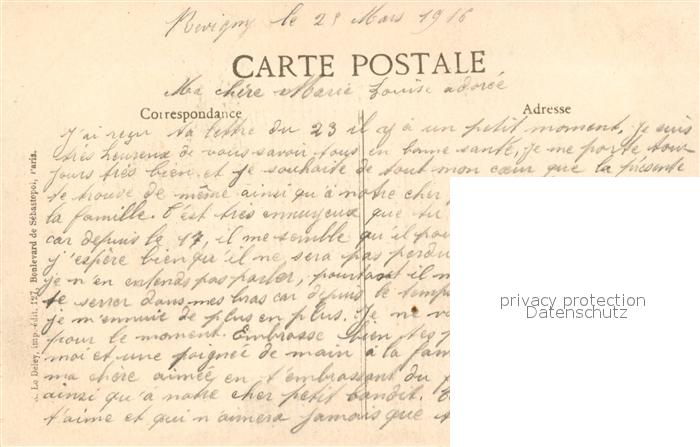 Revigny le 25 Mars 1916
CARTE POSTALE
Ma chère Marie Louise adorée
Correspondance
Adresse
J'ai reçu ta lettre du 23 il y à un petit moment, je suis
très heureux de vous savoir tous en bonne santé, je me porte tou-
jours très bien et je souhaite de tout mon cœur que la présente
te trouve de même ainsi qu'à notre cher
la famille. C'est très ennuyeux que tu
car depuis le 17, il me semble qu'il pou
j'espère bien qu'il ne sera pas perdu
je n'en entends pas parler, pourtant il m
te serrer dans mes bras car depuis le temps
je m'ennuie de plus en plus. Je ne vo
pour le moment. Embrasse bien tes p
moi et une poignée de main à la fam
ma chère aimée en t'embrassant du
ainsi qu'à notre cher petit bandit.
t'aime et qui n'aimera jamais que
Le Deley, imp.-édit. 127, Boulevard de Sébastopol, Paris.
privacy protection
Datenschutz